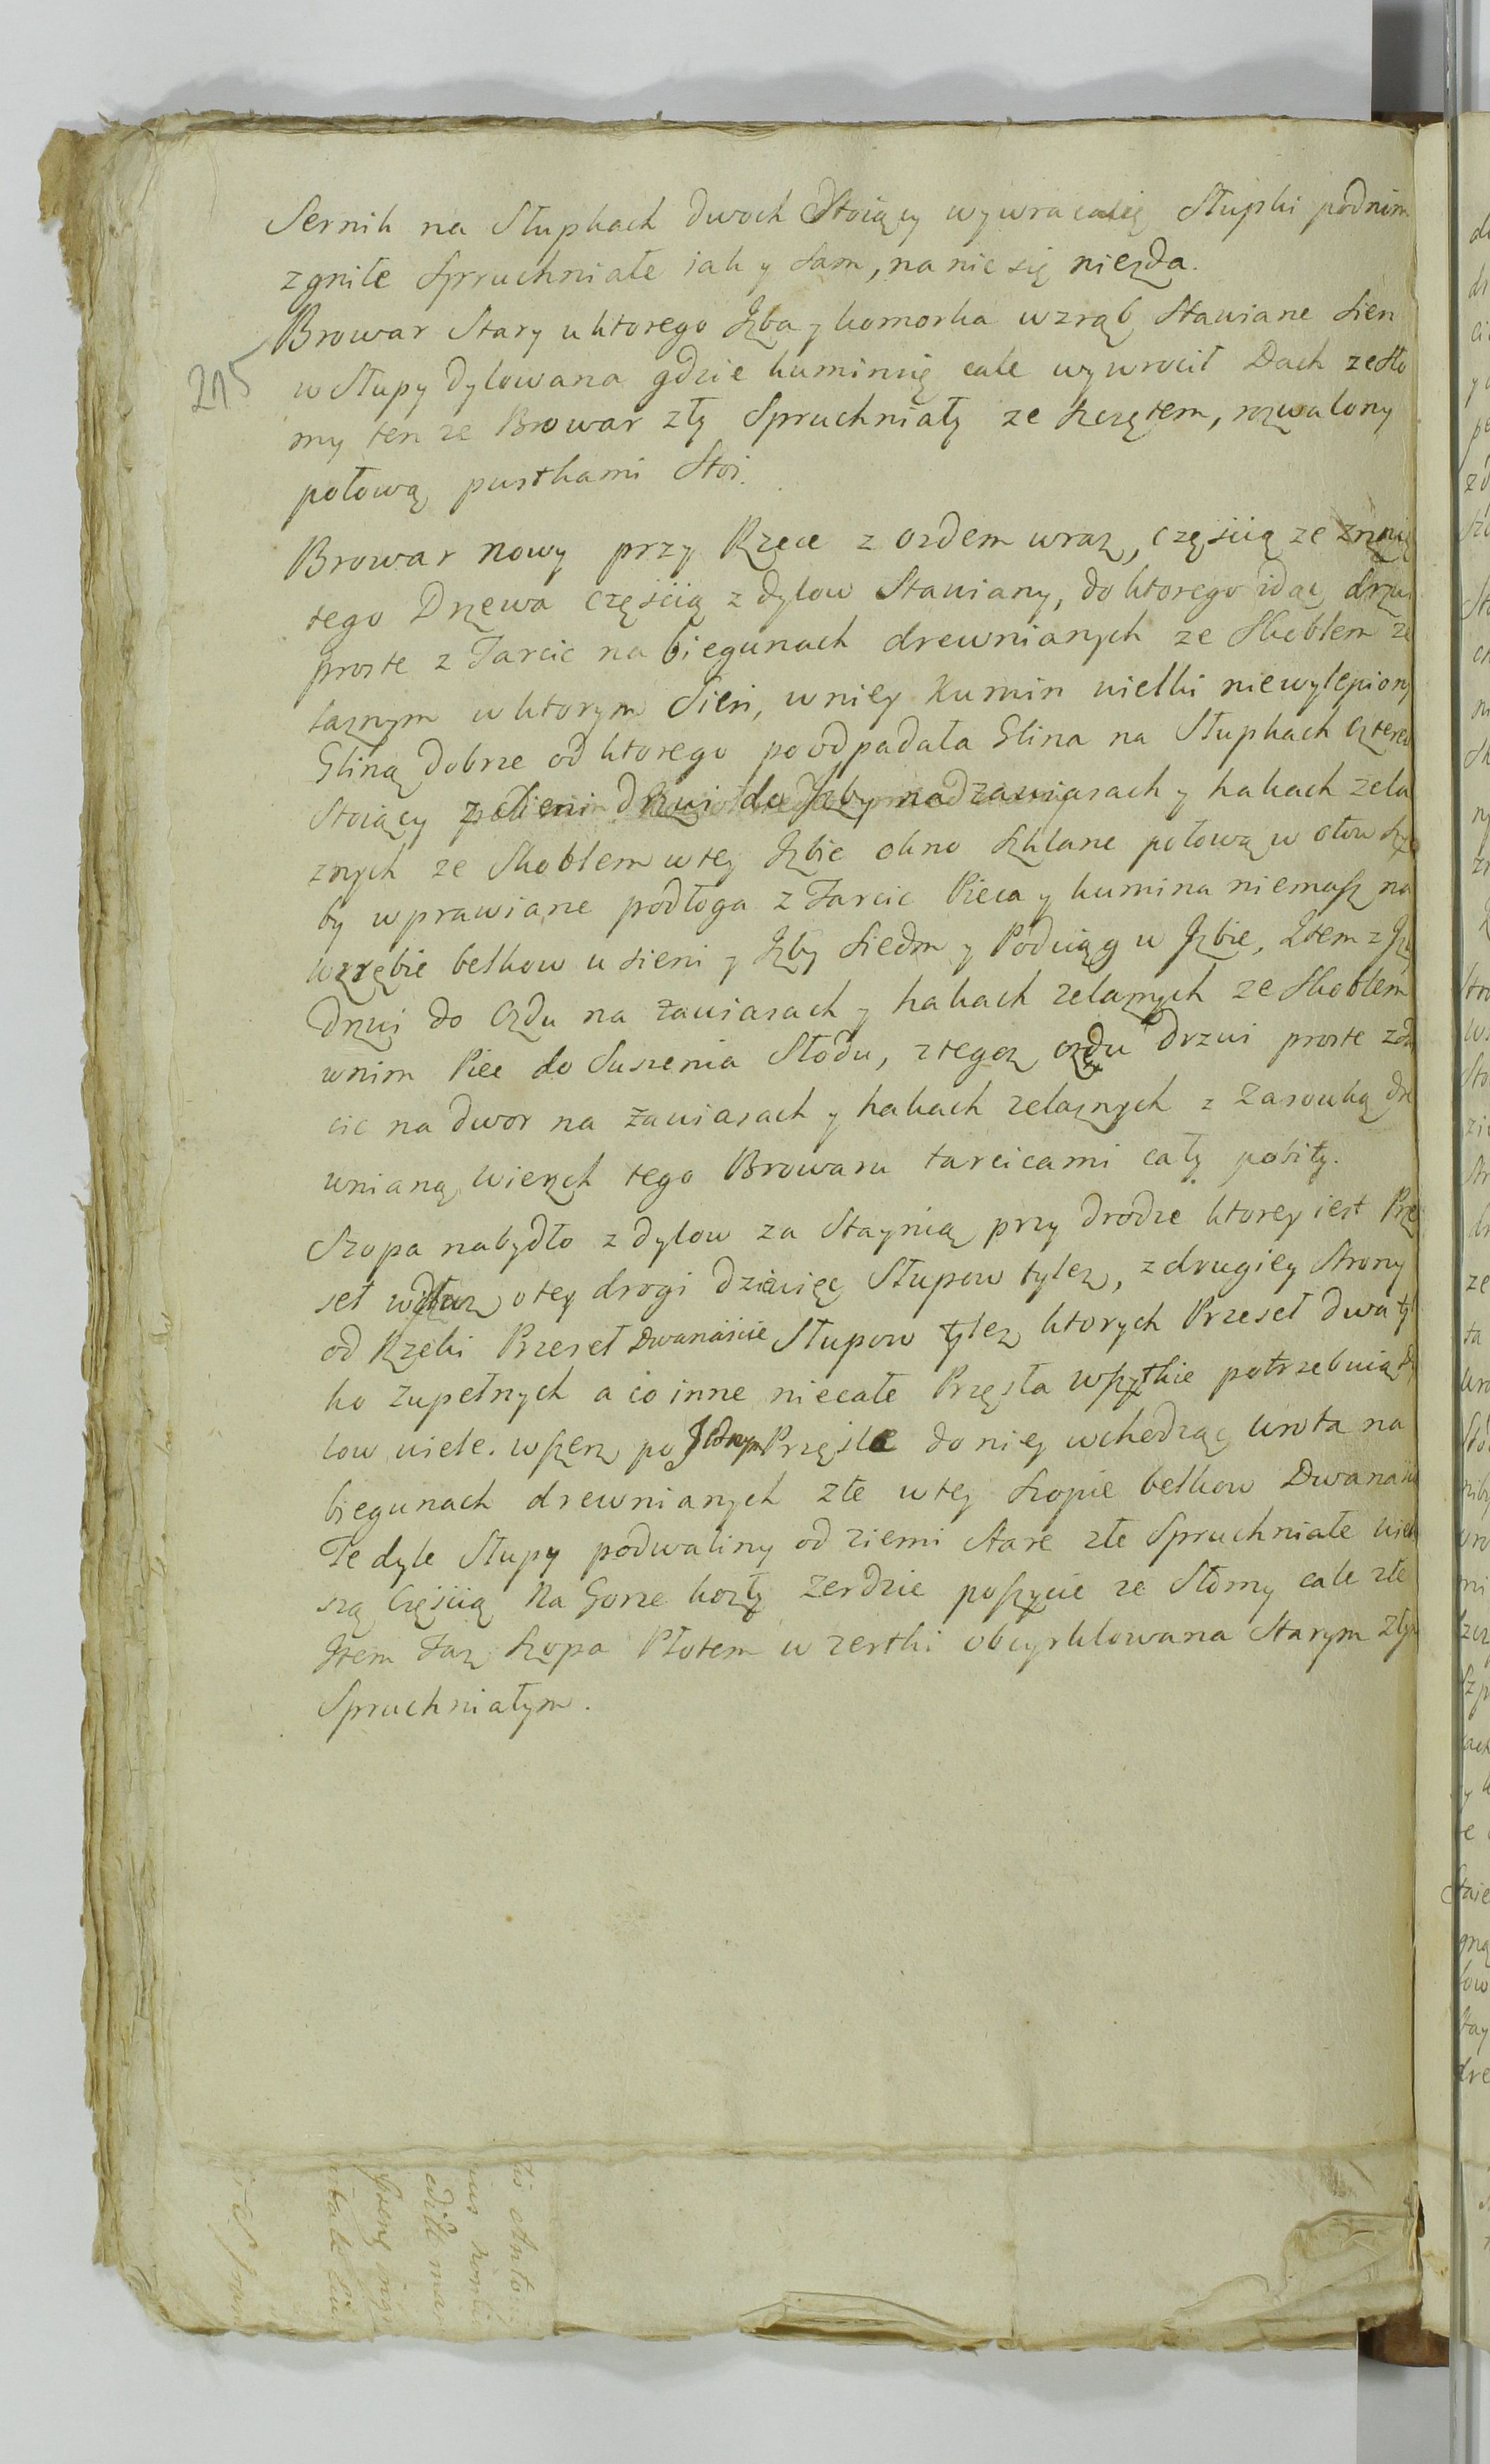 Sernik na Słupkach dwoch Stoiący wywracasię Słupki podnim
zgniłe Spruchniałe iak y Sam, na nic się niezda.
Browar Stary uktorego Jzba y komorka wzrąb Stawiane Sien
215
w Słupy dylowana gdzie kuminsię cale wywrocił Dach zesło
my ten ze Browar zły Spruchniały ze szczętem, rozwalony
połową pustkami Stoi.
Browar nowy przy Rzęce z ozdem wraz, częścią ze zrznię
tego Drzewa częścią z dylow Stawiany, do ktorego idąc drzwi
proste z Tarcic na biegunach drewnianych ze Skoblem że
laznym wktorym Sień, wniey Kumin wielki niewylepiony
Gliną dobrze od ktorego poodpadała Glina na Słupkach cztere
Stoiący z Sieni drzwi do Jzby na zawiasach y hakach żela
znych ze Skoblem wtey Jzbie okno szklane połową w ołow szy
by wprawiane podłoga z Tarcic Pieca y kumina niemasz na
wzrębie belkow u sieni y Jzby Siedm y Podciąg w Jzbie, Jtem z Jz
Drzwi do Ozdu na zawiasach y hakach zelaznych ze Skoblem
wnim Piec do Suszenia Słodu, ztegoz ozdu drzwi proste z
cic na dwor na zawiasach y hakach zelaznych z Zasowką dre
wnianą, wierzch tego Browaru tarcicami cały pobiły.
Szopa nabydło z dylow za Staynią przy drodze ktorey iest Prze
seł wdłuz otey drogi dziewięc Słupow tylez, zdrugiey Strony
od Rzeki Przeseł Dwanaście Słupow tylez ktorych Przeseł dwa tyl
ko zupełnych a co inne niecałe Przęsła wszytkie potrzebuią dy
low wiele. wszerz po Jednym Przęśle do niey wchodząc wrota na
biegunach drewnianych złe wtey Szopie belkow Dwanaści
Te dyle Słupy podwaliny od ziemi Stare złe Spruchniałe wiek
szą Częścią Na Gorze kozły Zerdzie poszycie ze Słomy cale złe
Jtem Taz Szopa Płotem w zertki obcyrklowana Starym złym
Spruchniałym.